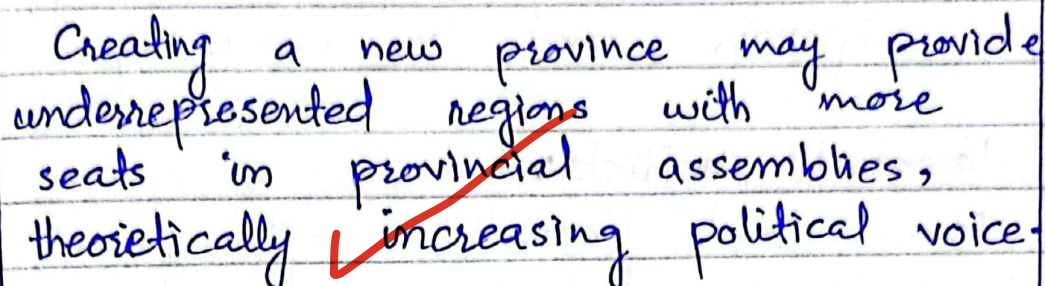 Creating a new province may provide
underrepresented regions with more
seats in provincial assemblies,
theoretically increasing political voice.